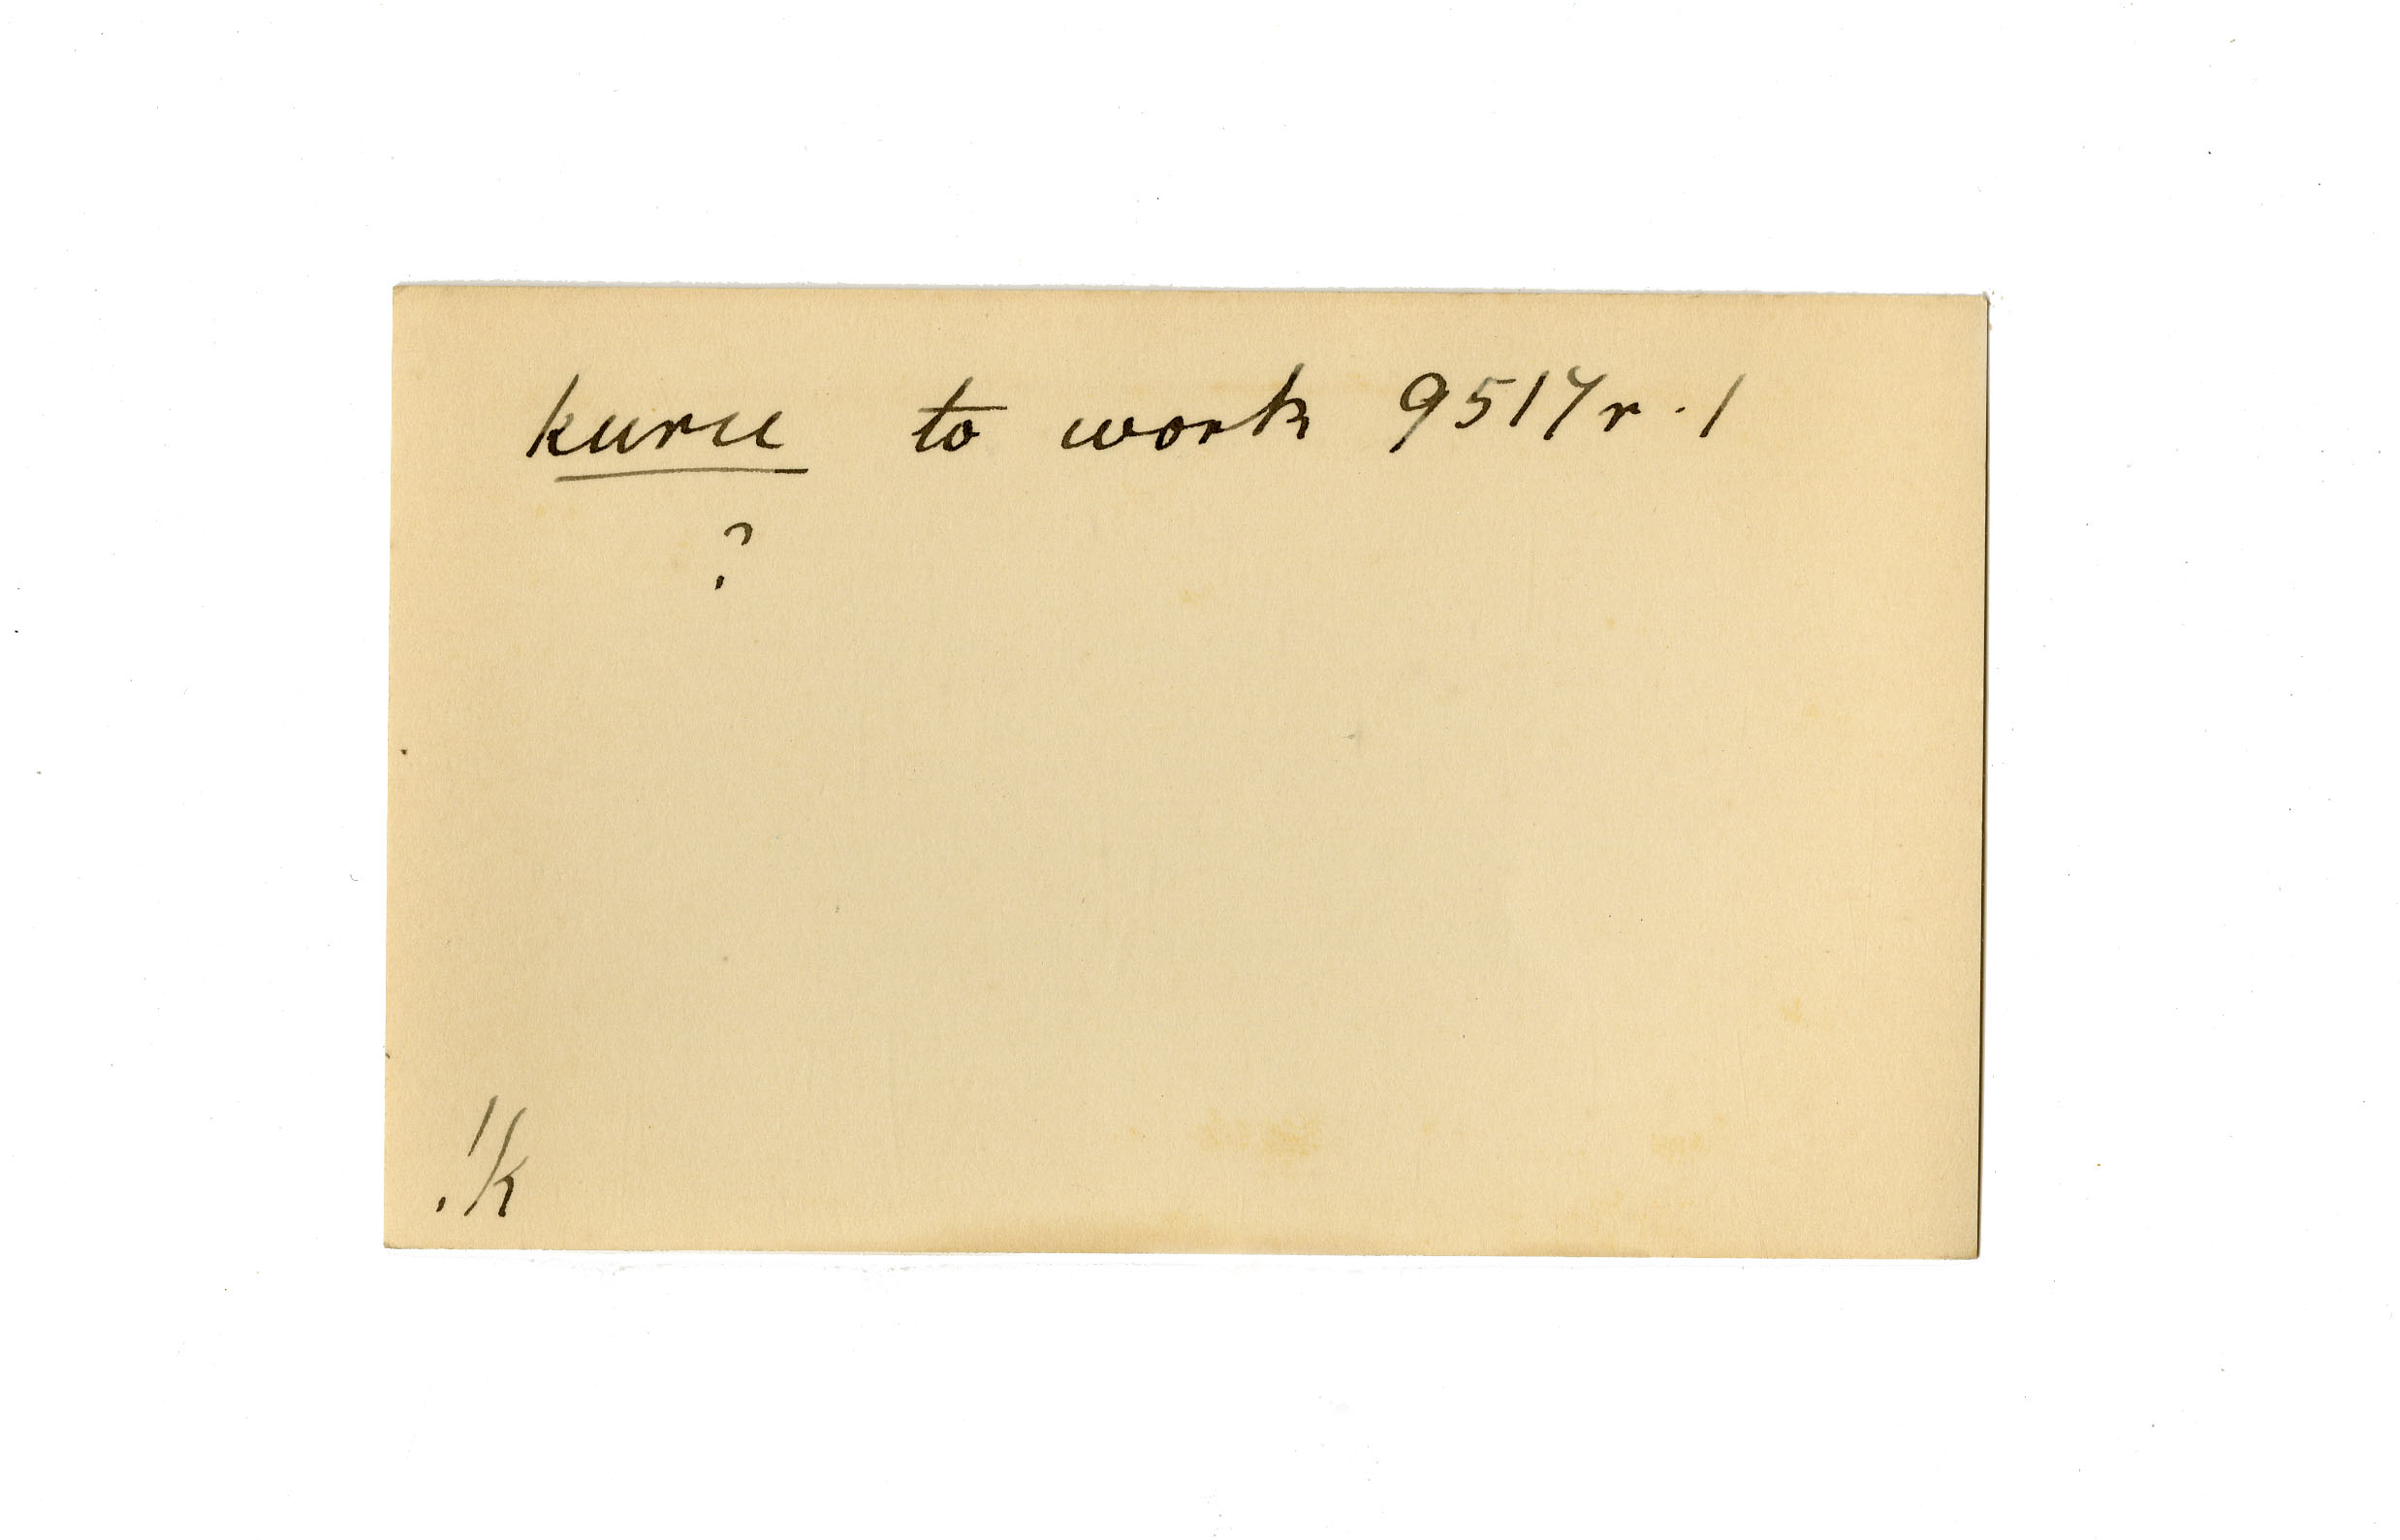 kuru to work 9517r.1
?
!k